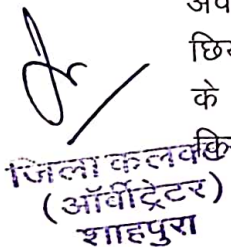 अव
छि
के
कि
जिला कलक्टर
(ऑर्बीट्रेटर)
शाहपुरा